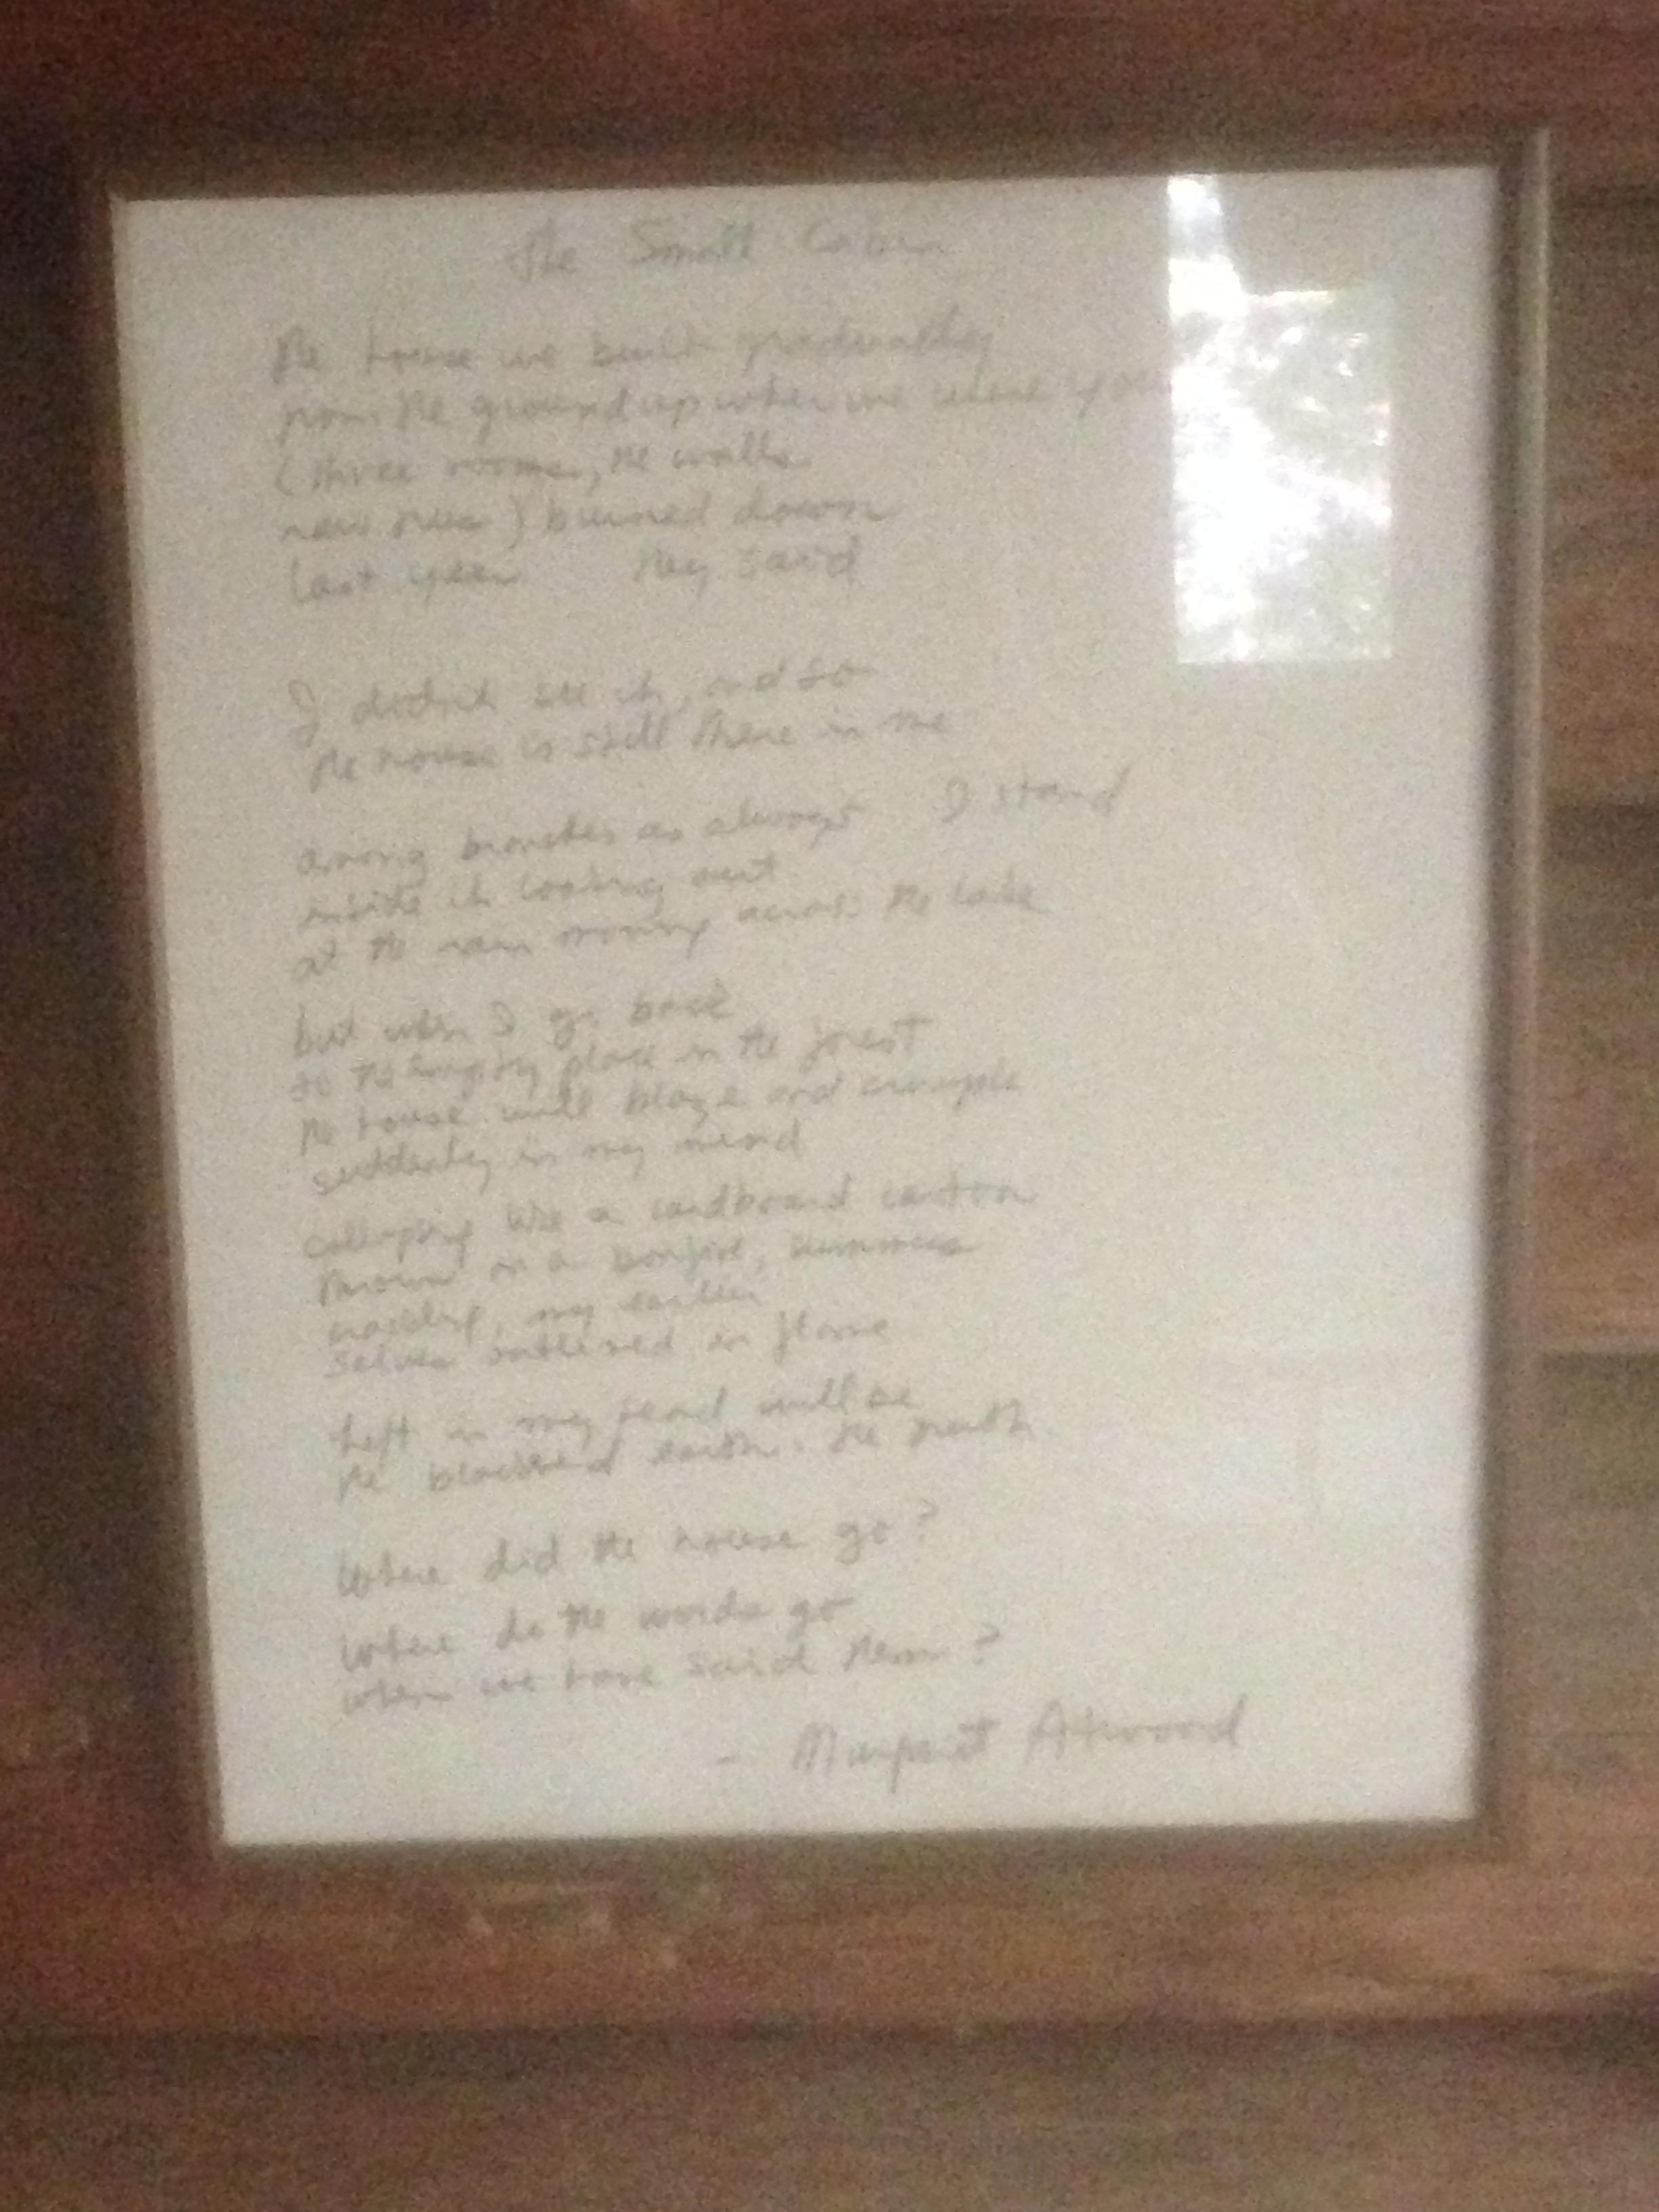 The Small Cabin
The house we built gradually
from the ground up when we were
(three rooms, the walls
raw trees) burned down
last year they said
I didn't see it, and so
the house is still there in me
among branches as always I stand
inside it looking out
at the rain moving across the lake
but when I go back
to the empty place in the forest
the house will blaze and crumple
suddenly in my mind
collapsing like a cardboard carton
thrown on a bonfire, summers
crackling, my earlier
selves outlined in flame
Left in my head will be
the blackened earth: the truth.
Where did the house go?
Where do the words go
when we have said them?
- Margaret Atwood